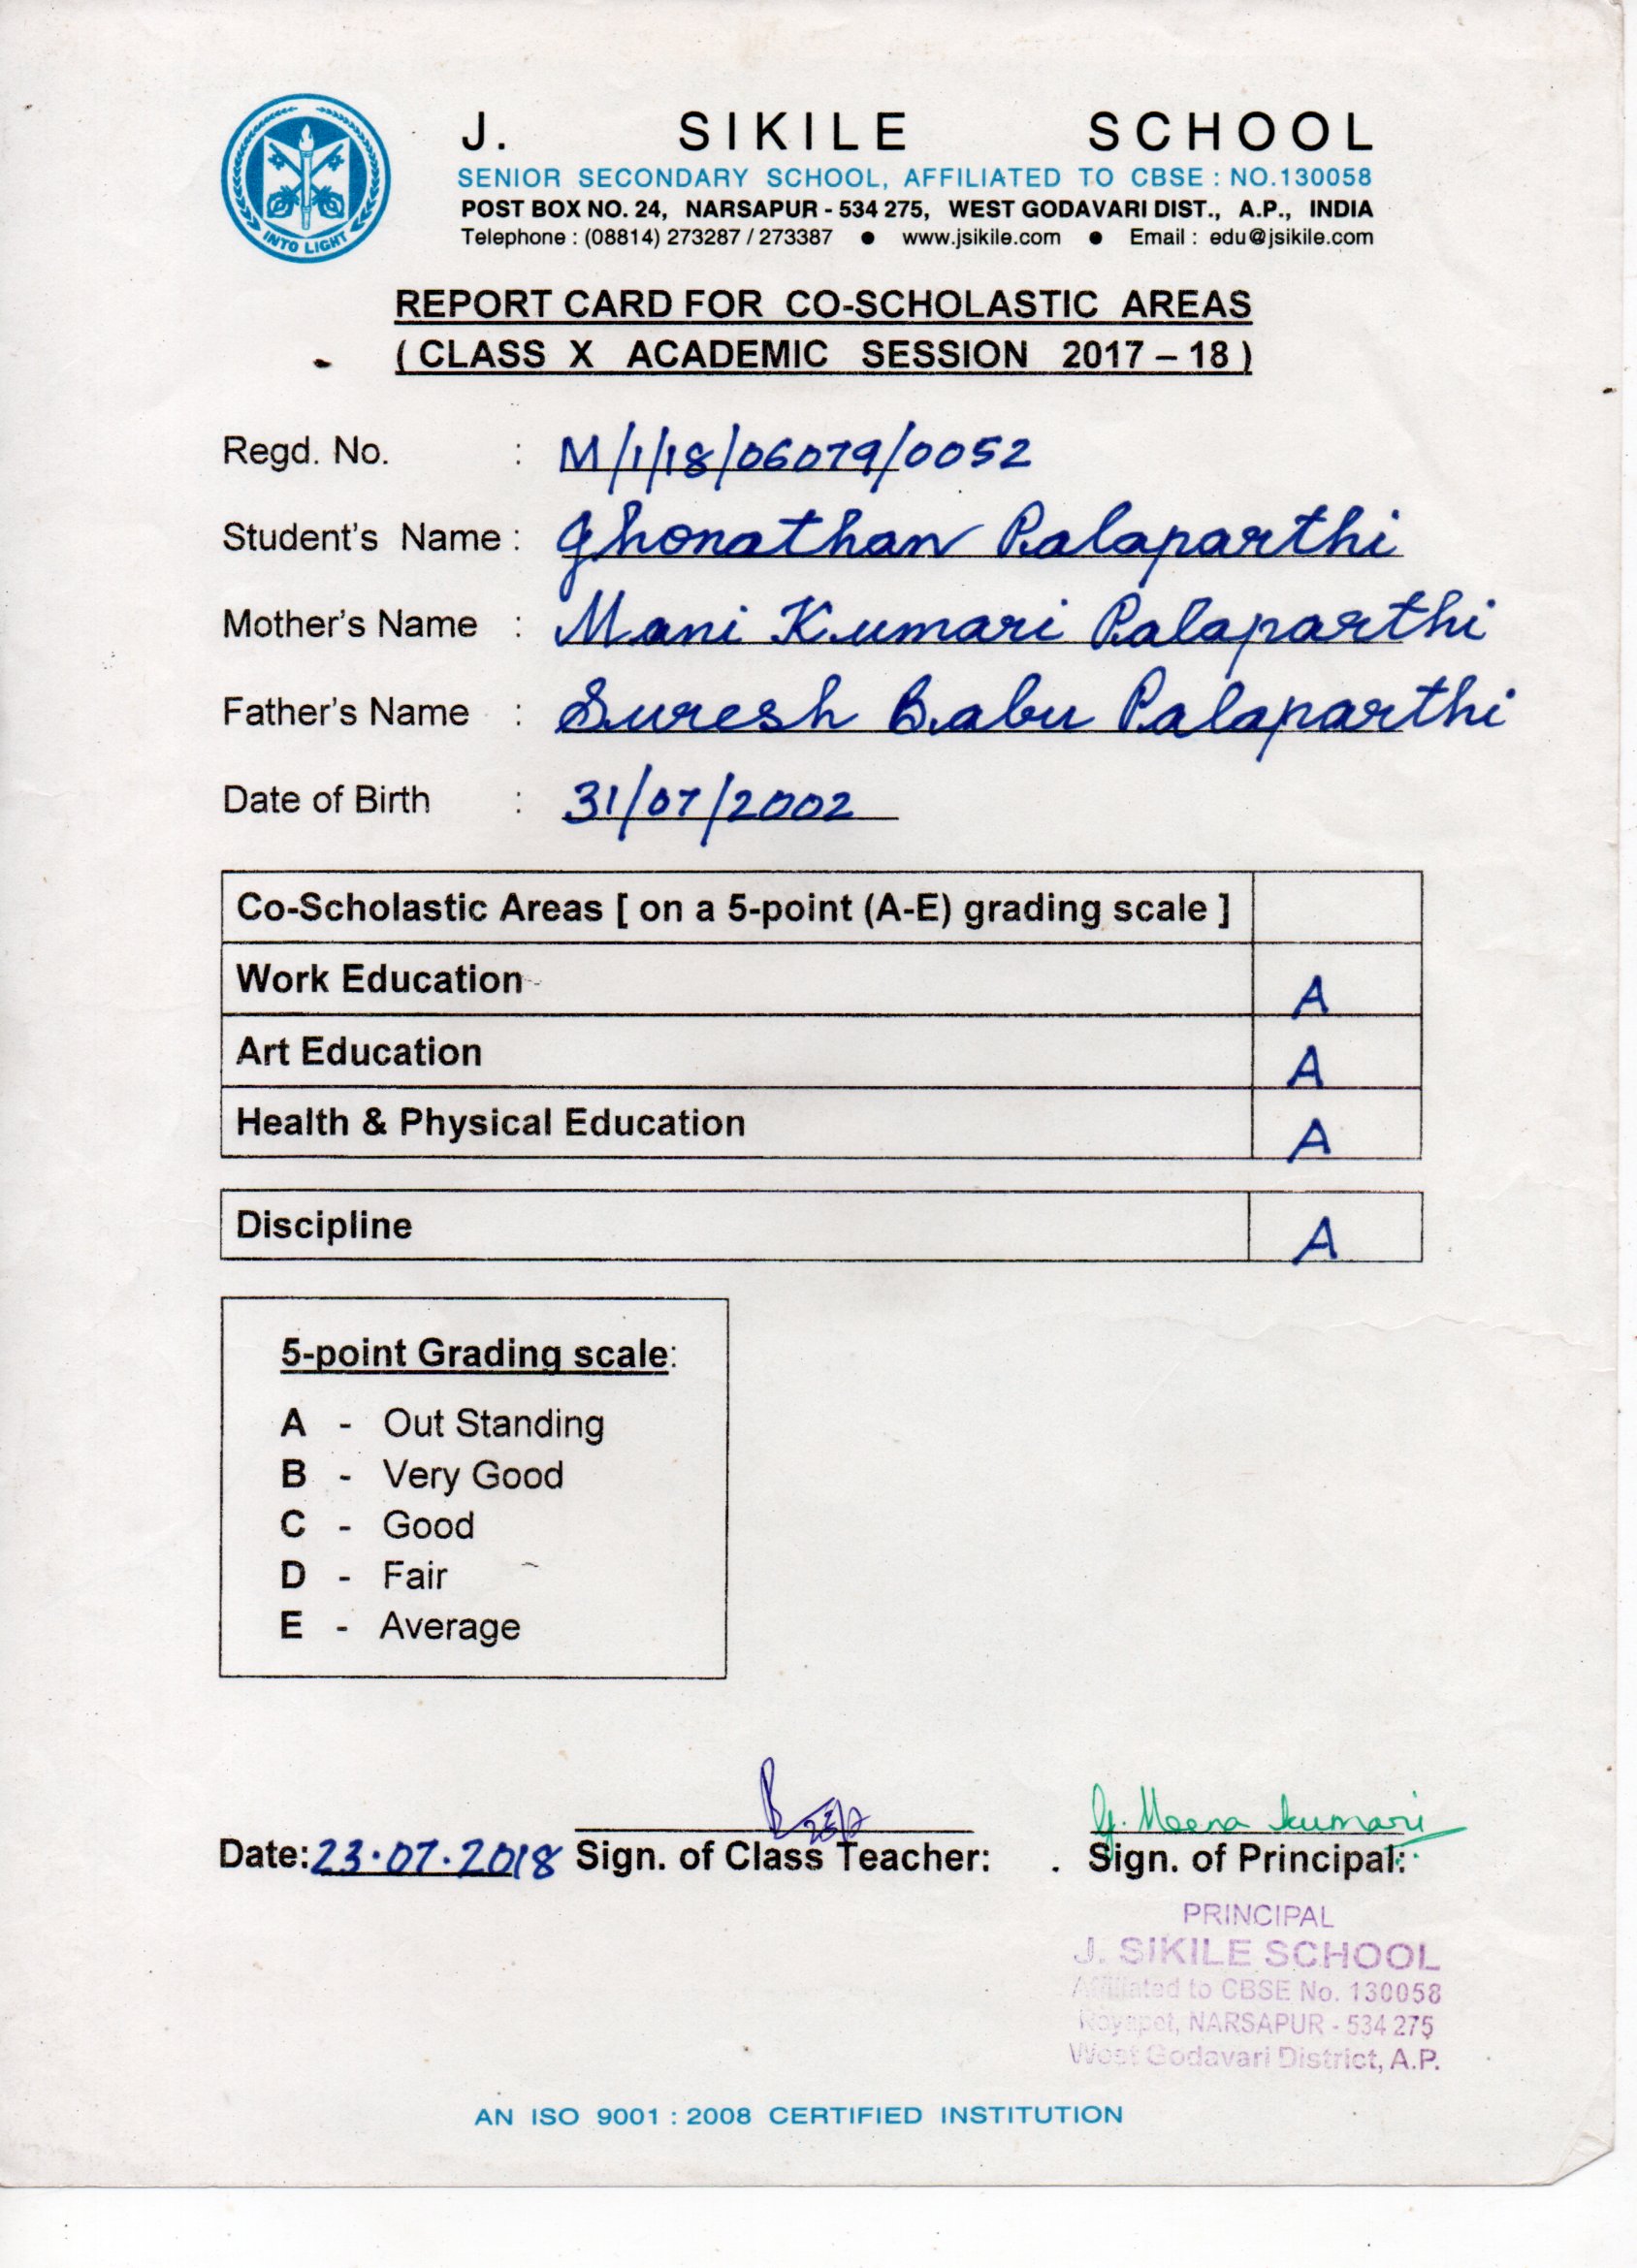 J. SIKILE SCHOOL
SENIOR SECONDARY SCHOOL, AFFILIATED TO CBSE : NO.130058
POST BOX NO. 24, NARSAPUR - 534 275, WEST GODAVARI DIST., A.P., INDIA
Telephone : (08814) 273287 / 273387 ● www.jsikile.com ● Email : edu@jsikile.com
INTO LIGHT
REPORT CARD FOR CO-SCHOLASTIC AREAS
( CLASS X ACADEMIC SESSION 2017 – 18 )
Regd. No. : M/1/18/06079/0052
Student's Name : Jhonathan Palaparthi
Mother's Name : Mani Kumari Palaparthi
Father's Name : Suresh Babu Palaparthi
Date of Birth : 31/07/2002
Co-Scholastic Areas [ on a 5-point (A-E) grading scale ]
Work Education A
Art Education A
Health & Physical Education A
Discipline A
5-point Grading scale:
A - Out Standing
B - Very Good
C - Good
D - Fair
E - Average
G. Meena Kumari
Date: 23.07.2018 Sign. of Class Teacher: Sign. of Principal:
PRINCIPAL
J. SIKILE SCHOOL
Affiliated to CBSE No. 130058
Royapet, NARSAPUR - 534 275
West Godavari District, A.P.
AN ISO 9001 : 2008 CERTIFIED INSTITUTION